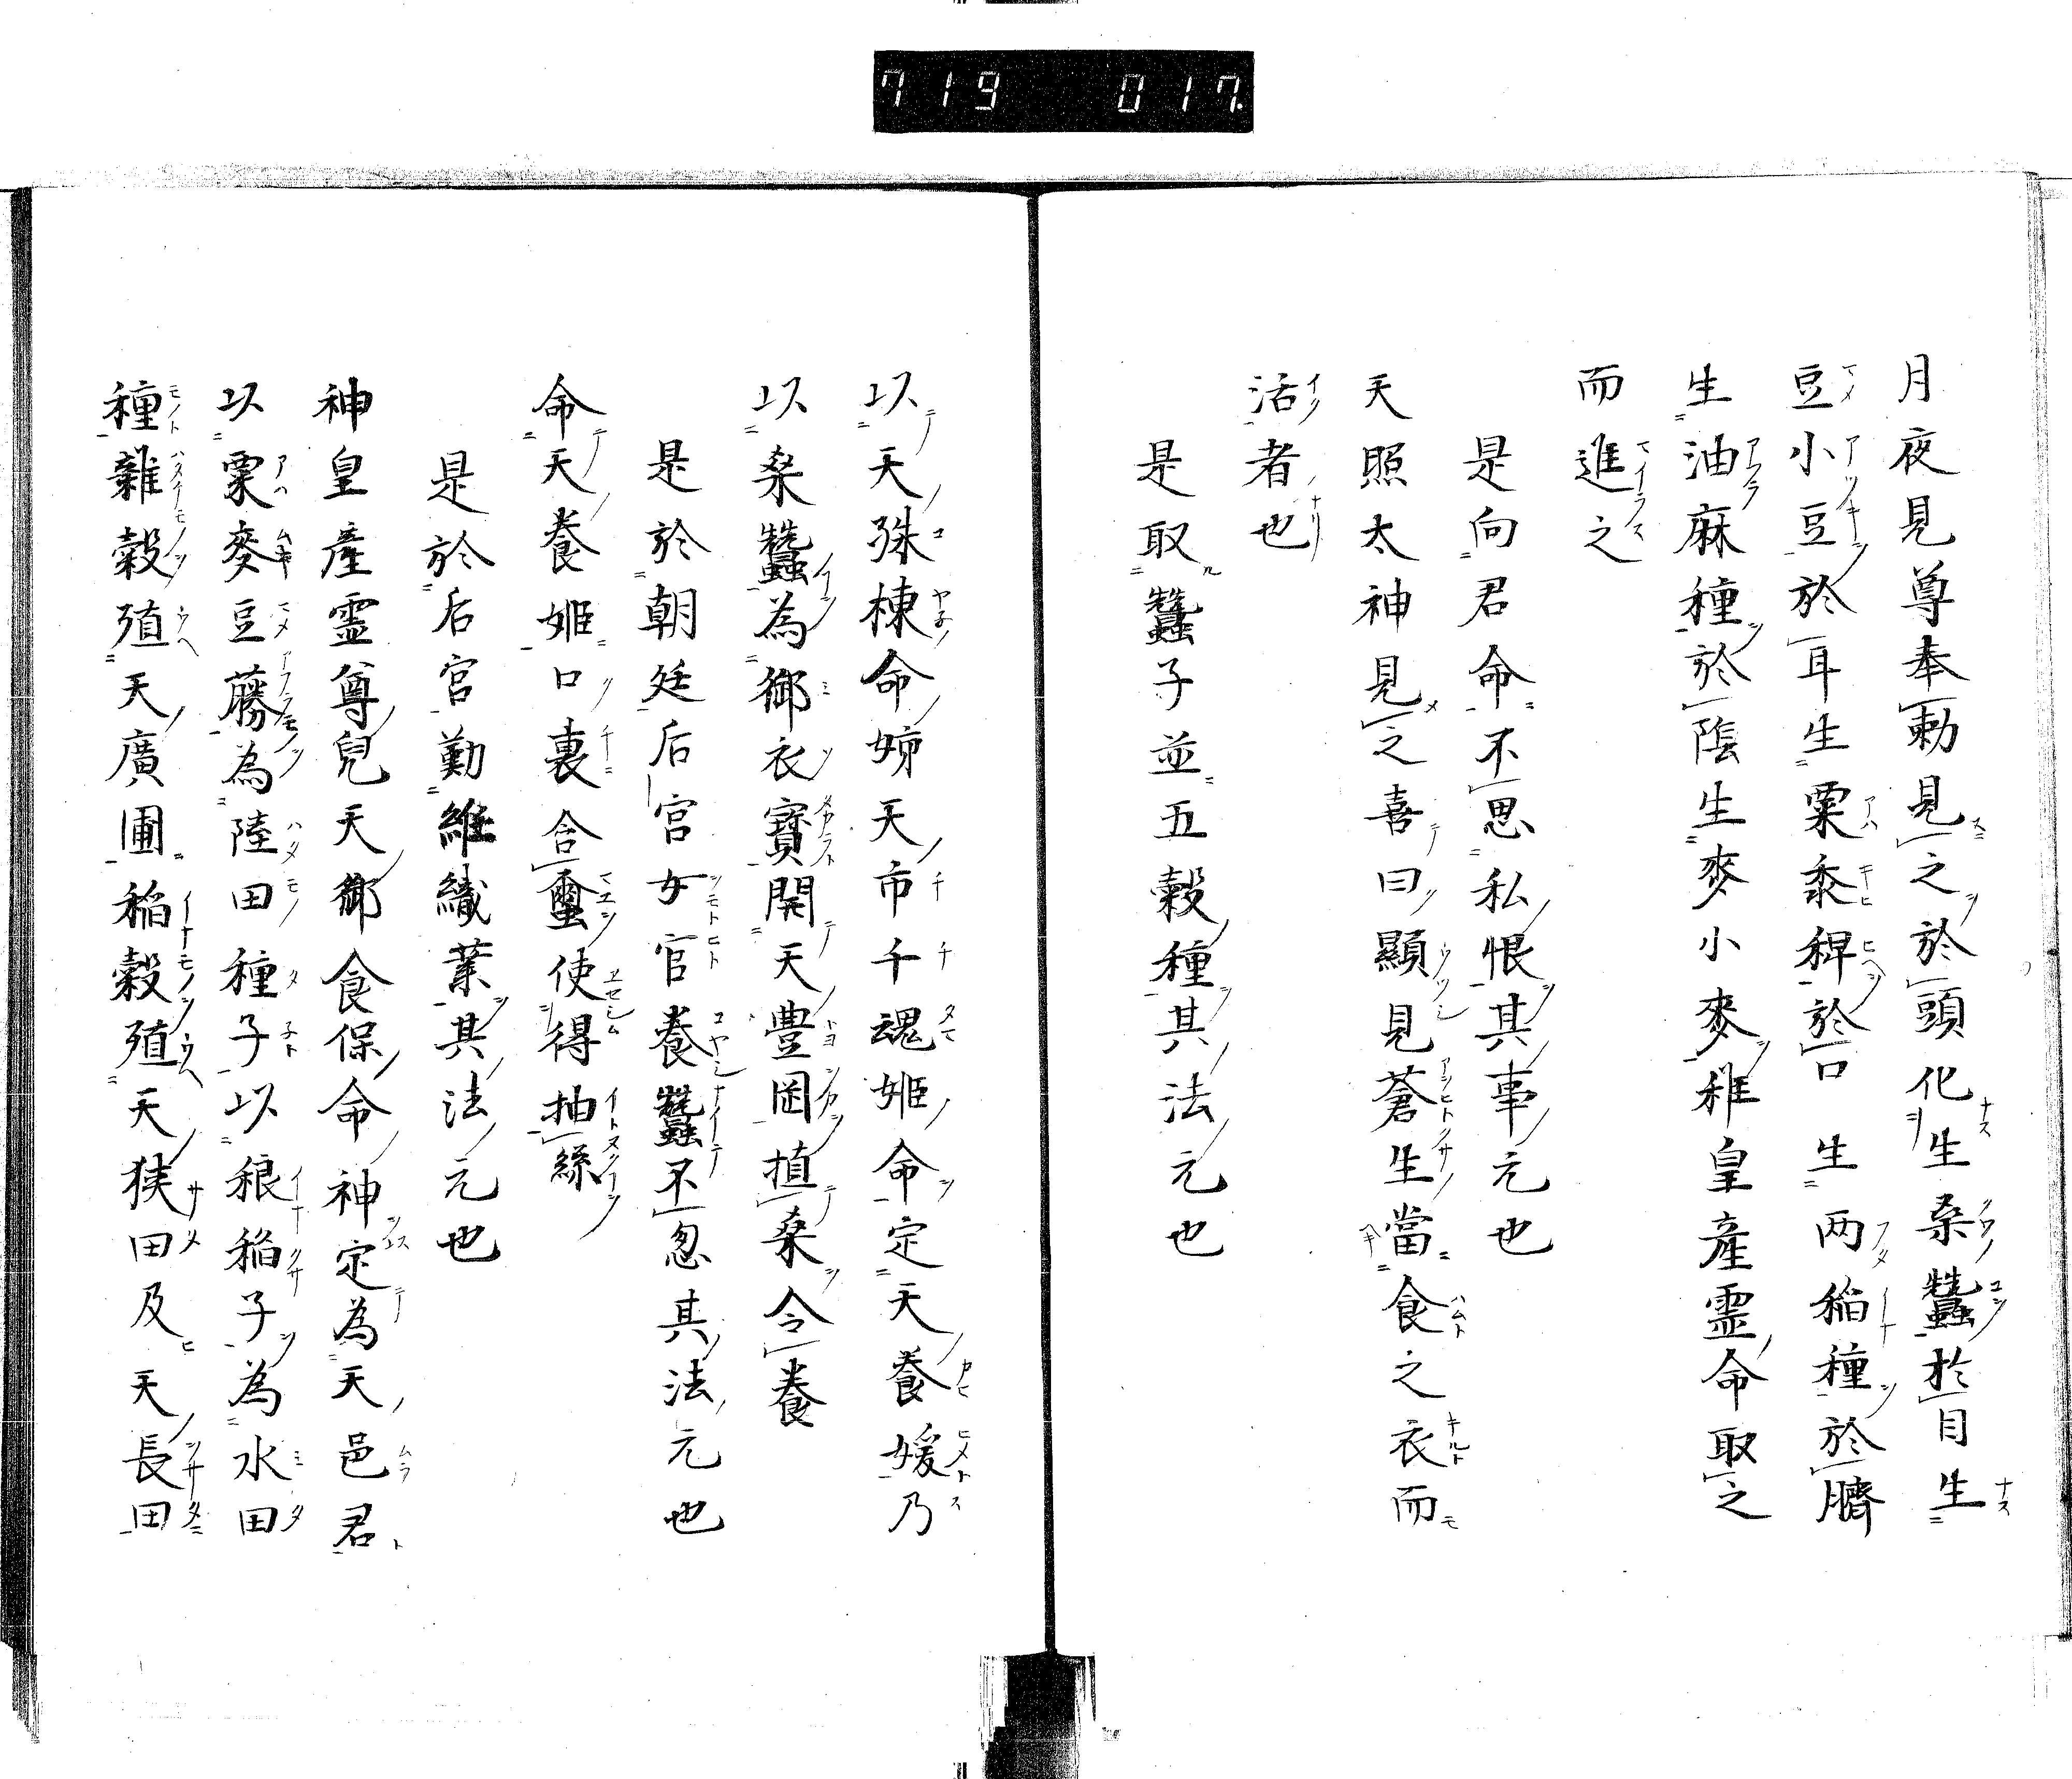 719 017
月夜見尊奉勅見之於頭化生桑蠶於目生
豆小豆於耳生粟黍稗於口生两稲種於臍
生油麻種於陰生麥小麥稚皇産霊命取之
而進之
是向君命不思私恨其事元也
天照太神見之喜曰顯見蒼生當食之衣而
活者也
是取蠶子並五穀種其法元也
以天殊棟命姉天市千魂姫命定天養媛乃
以桒蠶為御衣寶開天豊囶植桑令養
是於朝廷后宮女官養蠶不忽其法元也
命天養姫口裏含蠒使得抽絲
是於后宮勤維織業其法元也
神皇産霊尊兒天御食保命神定為天邑君
以粟麥豆䕨為陸田種子以稂稲子為水田
種雜穀殖天廣圃稲穀殖天狹田及天長田